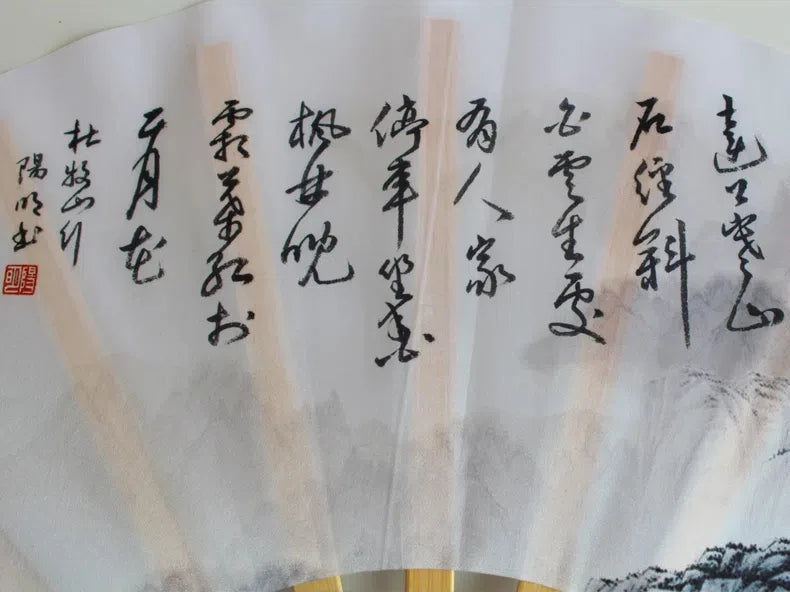 遠上寒山
石徑斜
白雲生處
有人家
停車坐愛
楓林晚
霜葉紅於
二月花
杜牧山行
陽明書
陽明